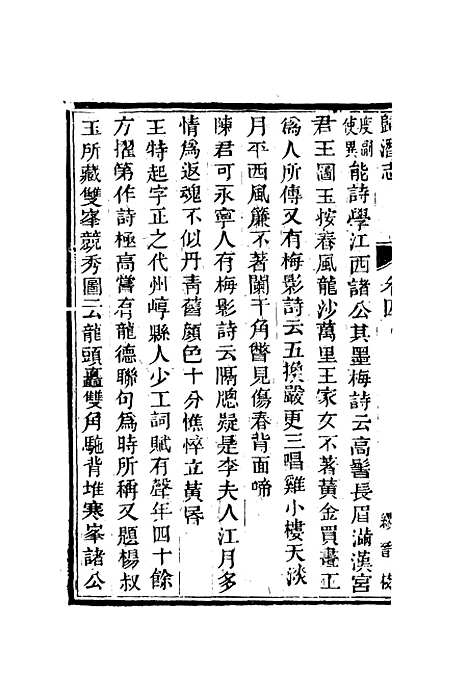 歸潛志 卷四
度副使異能詩學江西諸公其墨梅詩云高髻長眉滿漢宮
君王圖玉按春風龍沙萬里王家女不著黃金買畫工
爲人所傳又有梅影詩云五換嚴更三唱雞小樓天淡
月平西風簾不著闌干角瞥見傷春背面啼
陳君可永寧人有梅影詩云隔牕疑是李夫人江月多
情爲返魂不似丹青舊顏色十分憔悴立黃昬
王特起字正之代州崞縣人少工詞賦有聲年四十餘
方擢第作詩極高嘗有龍德聯句爲時所稱又題楊叔
玉所藏雙峯競秀圖云龍頭矗雙角駞背堆寒峯諸公